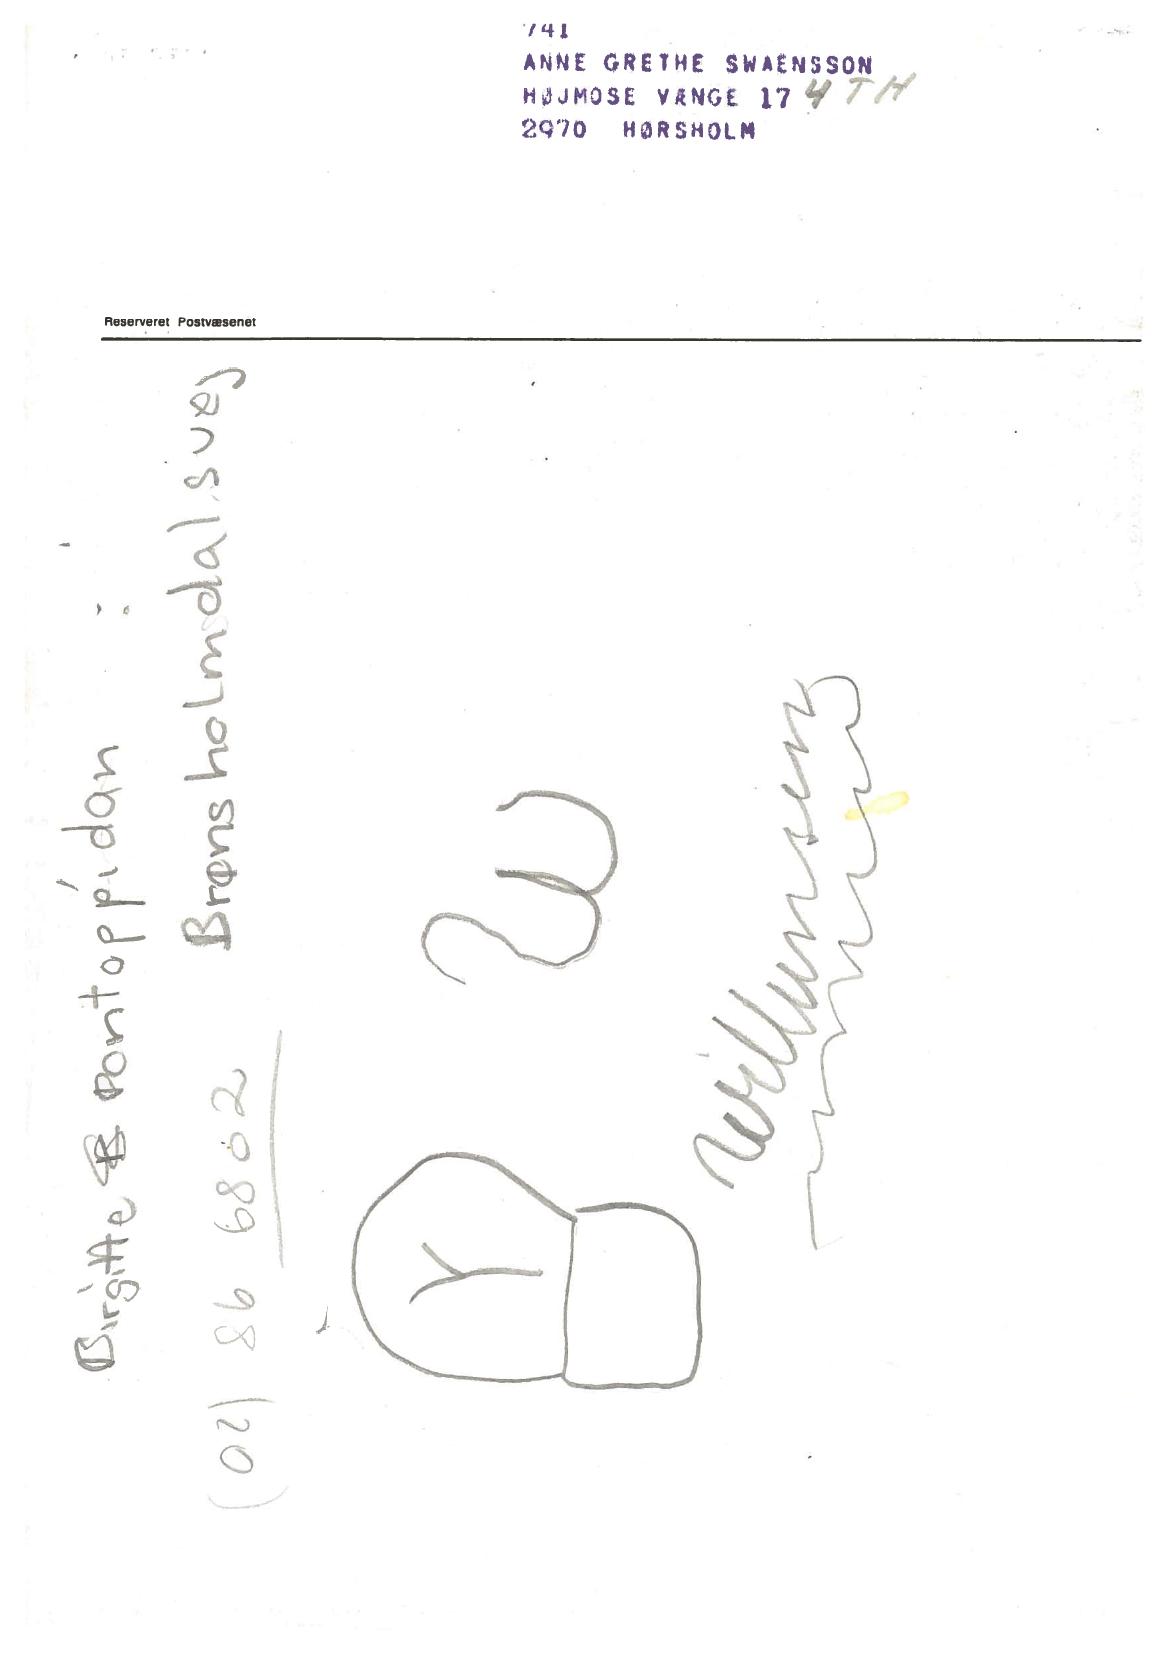 741
ANNE GRETHE SWAENSSON
HØJMOSE VÆNGE 17 4 TH
2970 HØRSHOLM
Reserveret Postvæsenet
Birgitte Pontoppidan :
Brønsholmdalsvej
(02) 86 6802
W
Willumsen